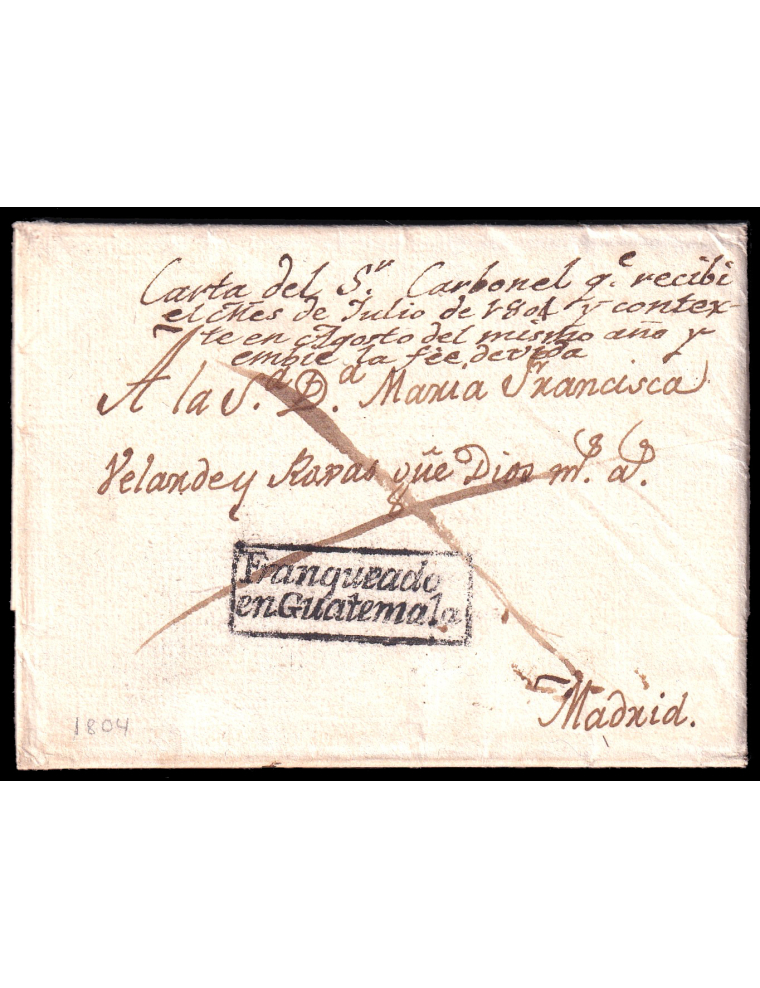 Carta del S.ʳ Carbonel q.ᵉ recibi
el Mes de Julio de 1804 y contex-
te en Agosto del mismo año y
embie la fée de vida
A la S.ᵃ D.ᵃ Maria Francisca
Velande y Roxas que Dios m.ˢ a.ˢ
Franqueado
en Guatemala
Madrid.
1804